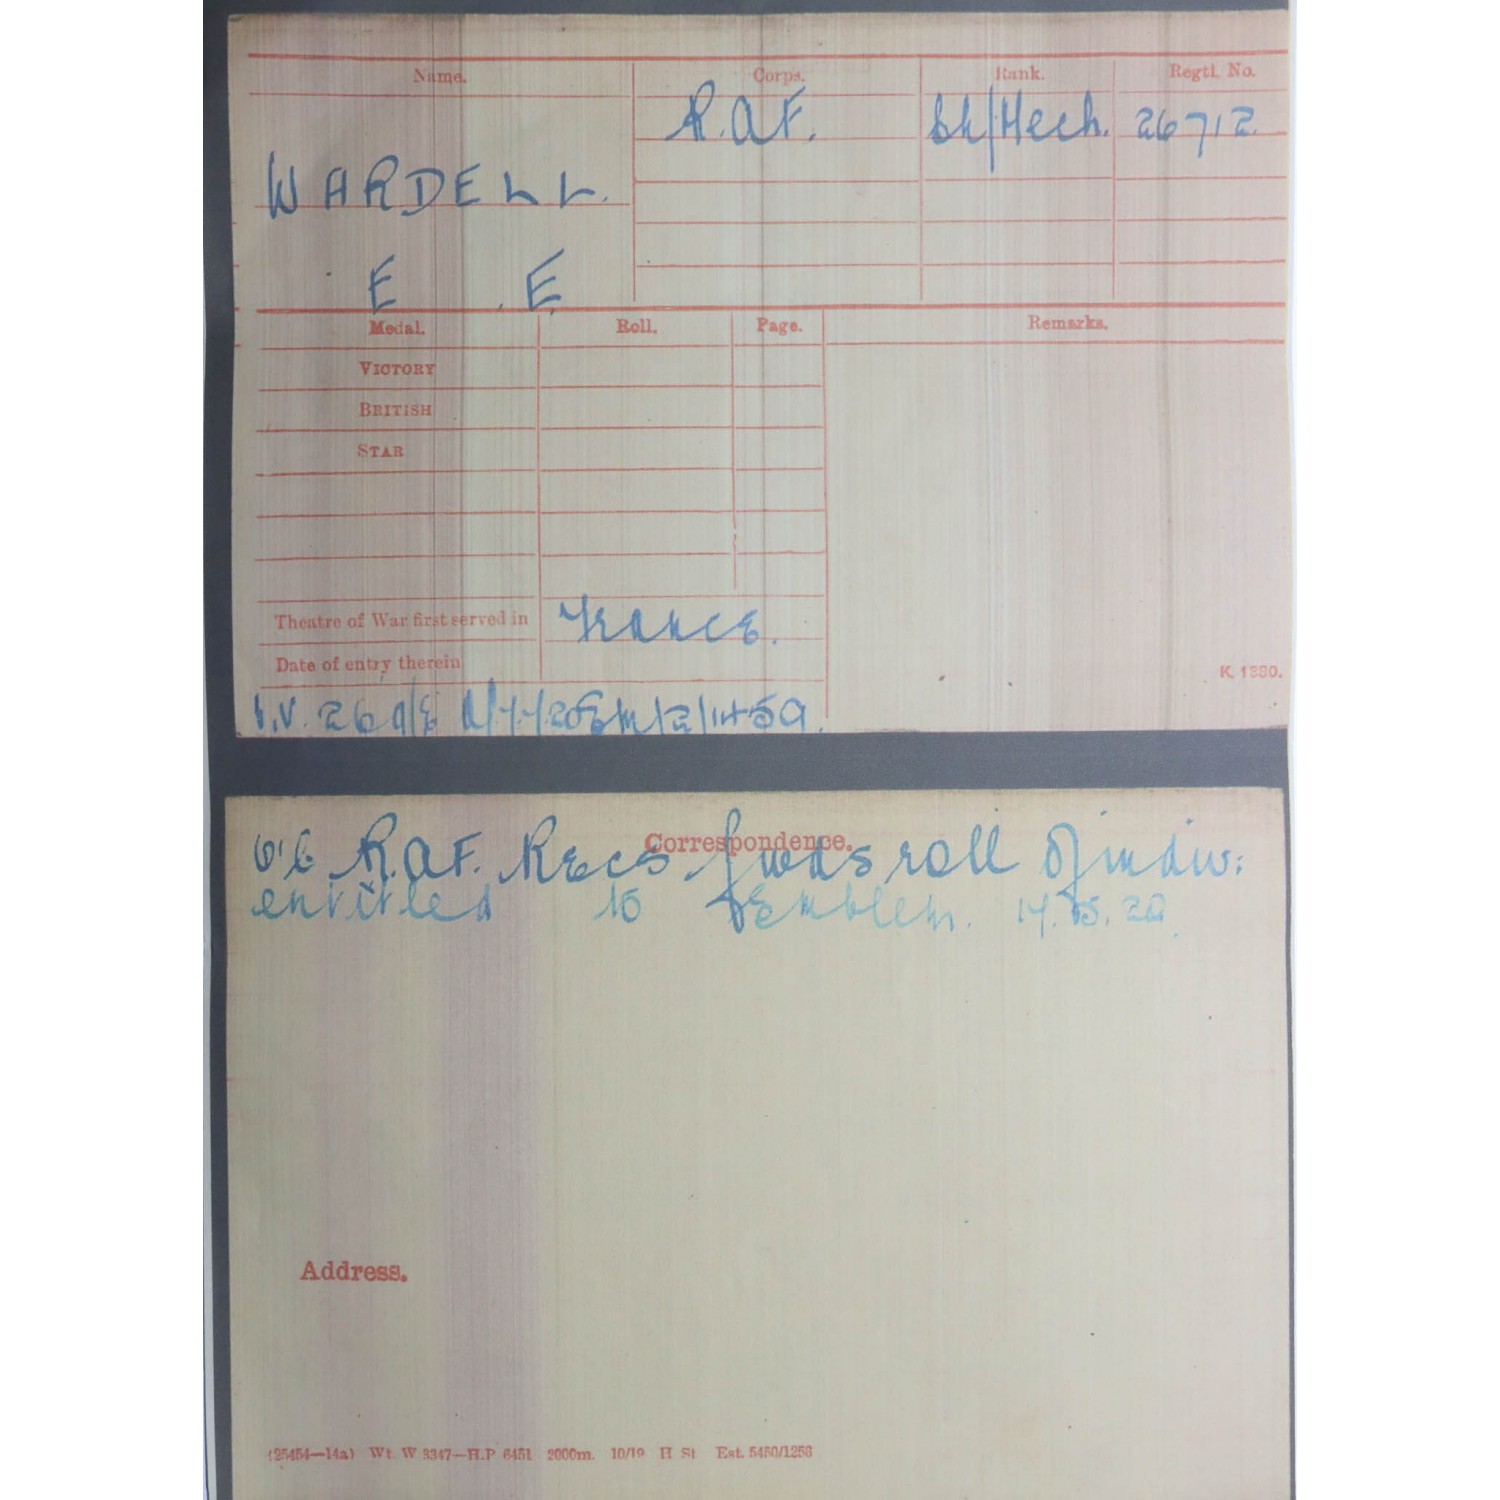 Name. Corps. Rank. Regtl. No.
R.A.F. Ch/Mech. 26712.
WARDELL.
E. E.
Medal. Roll. Page. Remarks.
VICTORY
BRITISH
STAR
Theatre of War first served in France.
Date of entry therein
K. 1380.
Correspondence.
O i/c R.A.F. Recs fwds roll of indiv:
entitled to Emblem. 14.5.20.
Address.
(25454—14a) Wt. W 3347—H.P. 6451 2000m. 10/19 H St Est. 5450/1258